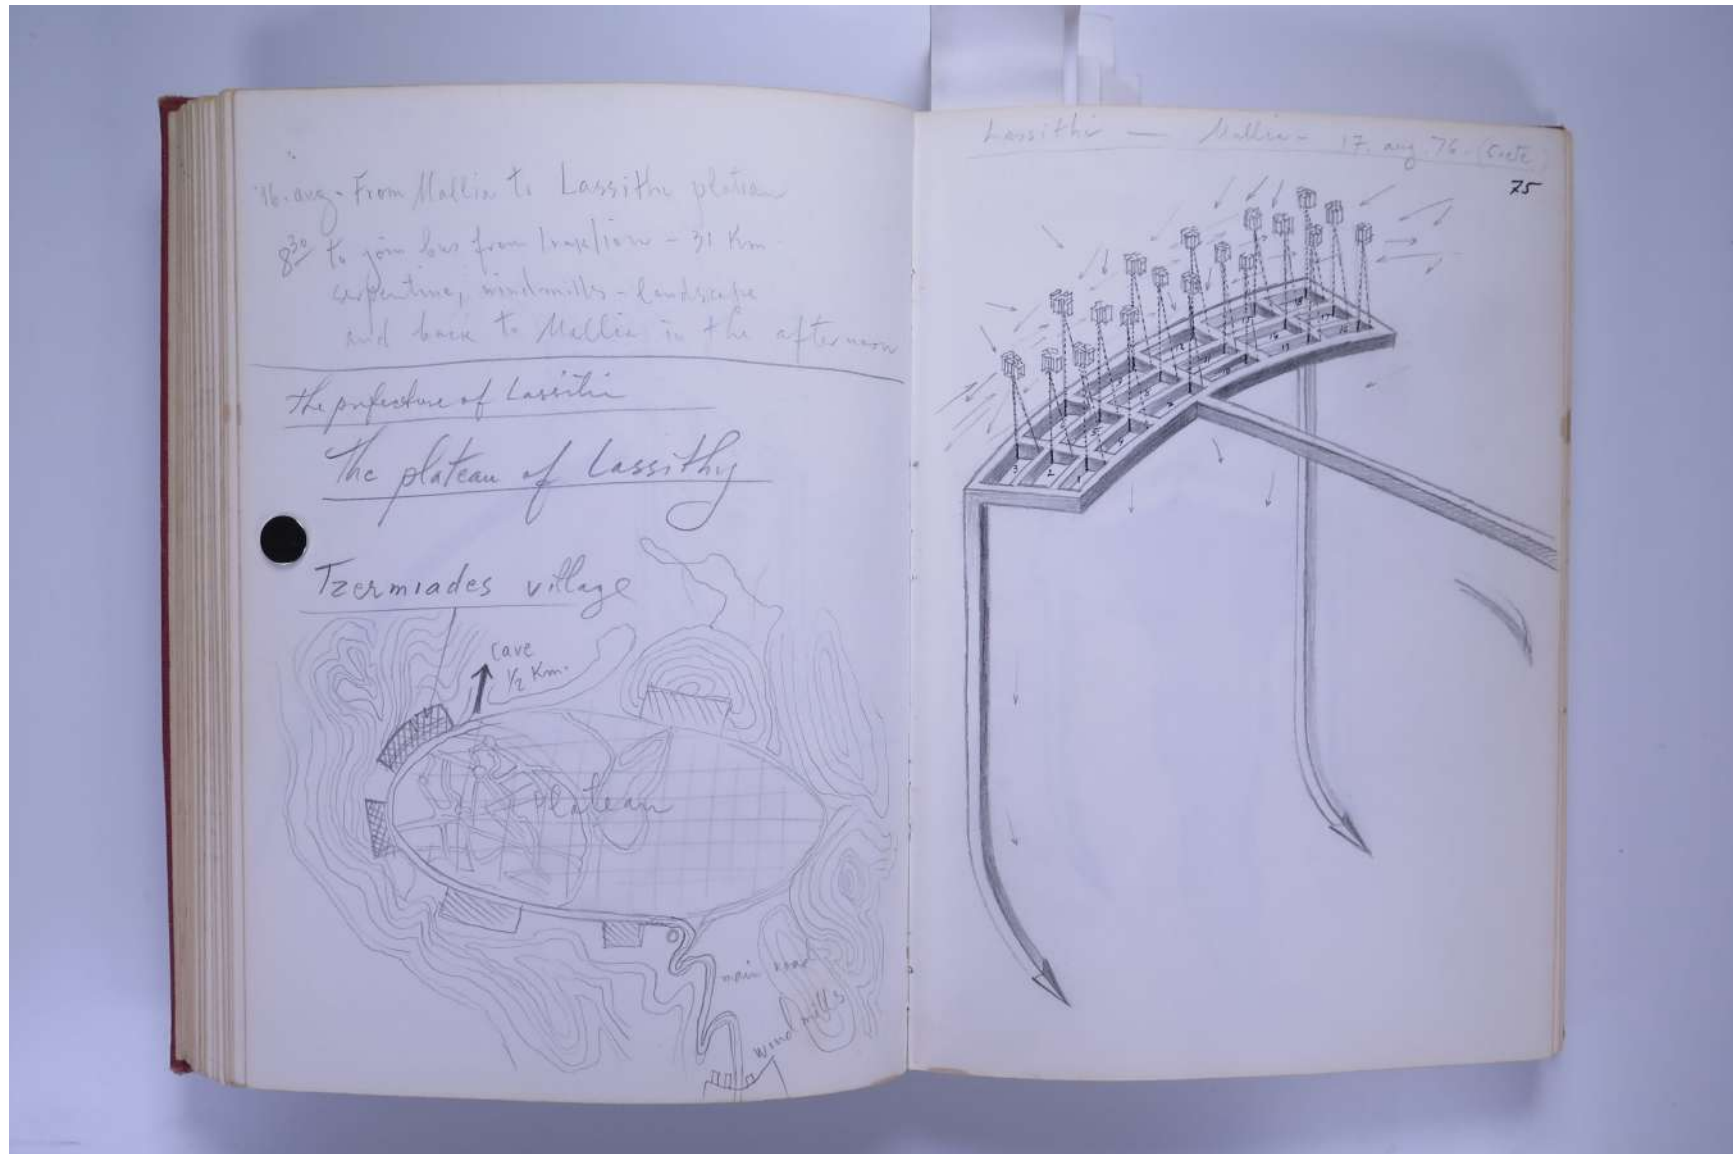 16. aug - From Mallia to Lassithi plateau
8 30 to join bus from Iraklion - 31 Km
serpentine, windmills - landscape
and back to Mallia in the afternoon
the prefecture of Lassithi
The plateau of Lassithy
Tzermiades village
cave
1/2 Km.
plateau
main road
wind mills
Lassithi — Mallia - 17. aug 76 (Crete)
75
3 2 1